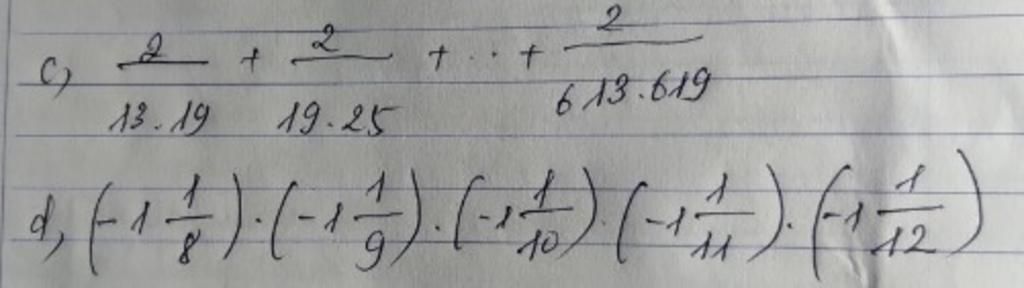 c, 2/13.19 + 2/19.25 + ... + 2/613.619
d, (-1 1/8).(-1 1/9).(-1 1/10).(-1 1/11).(-1 1/12)